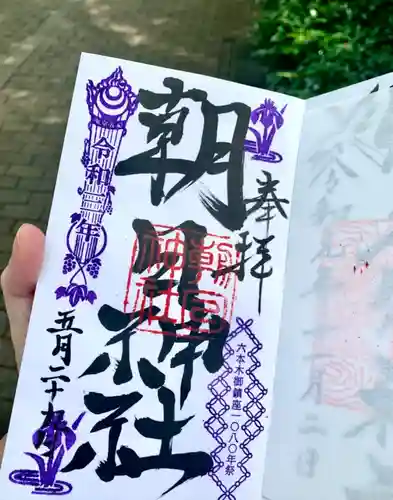 奉拝
六本木御鎮座一〇八〇年祭
朝日神社
朝日
神社
令和
年
五月二十